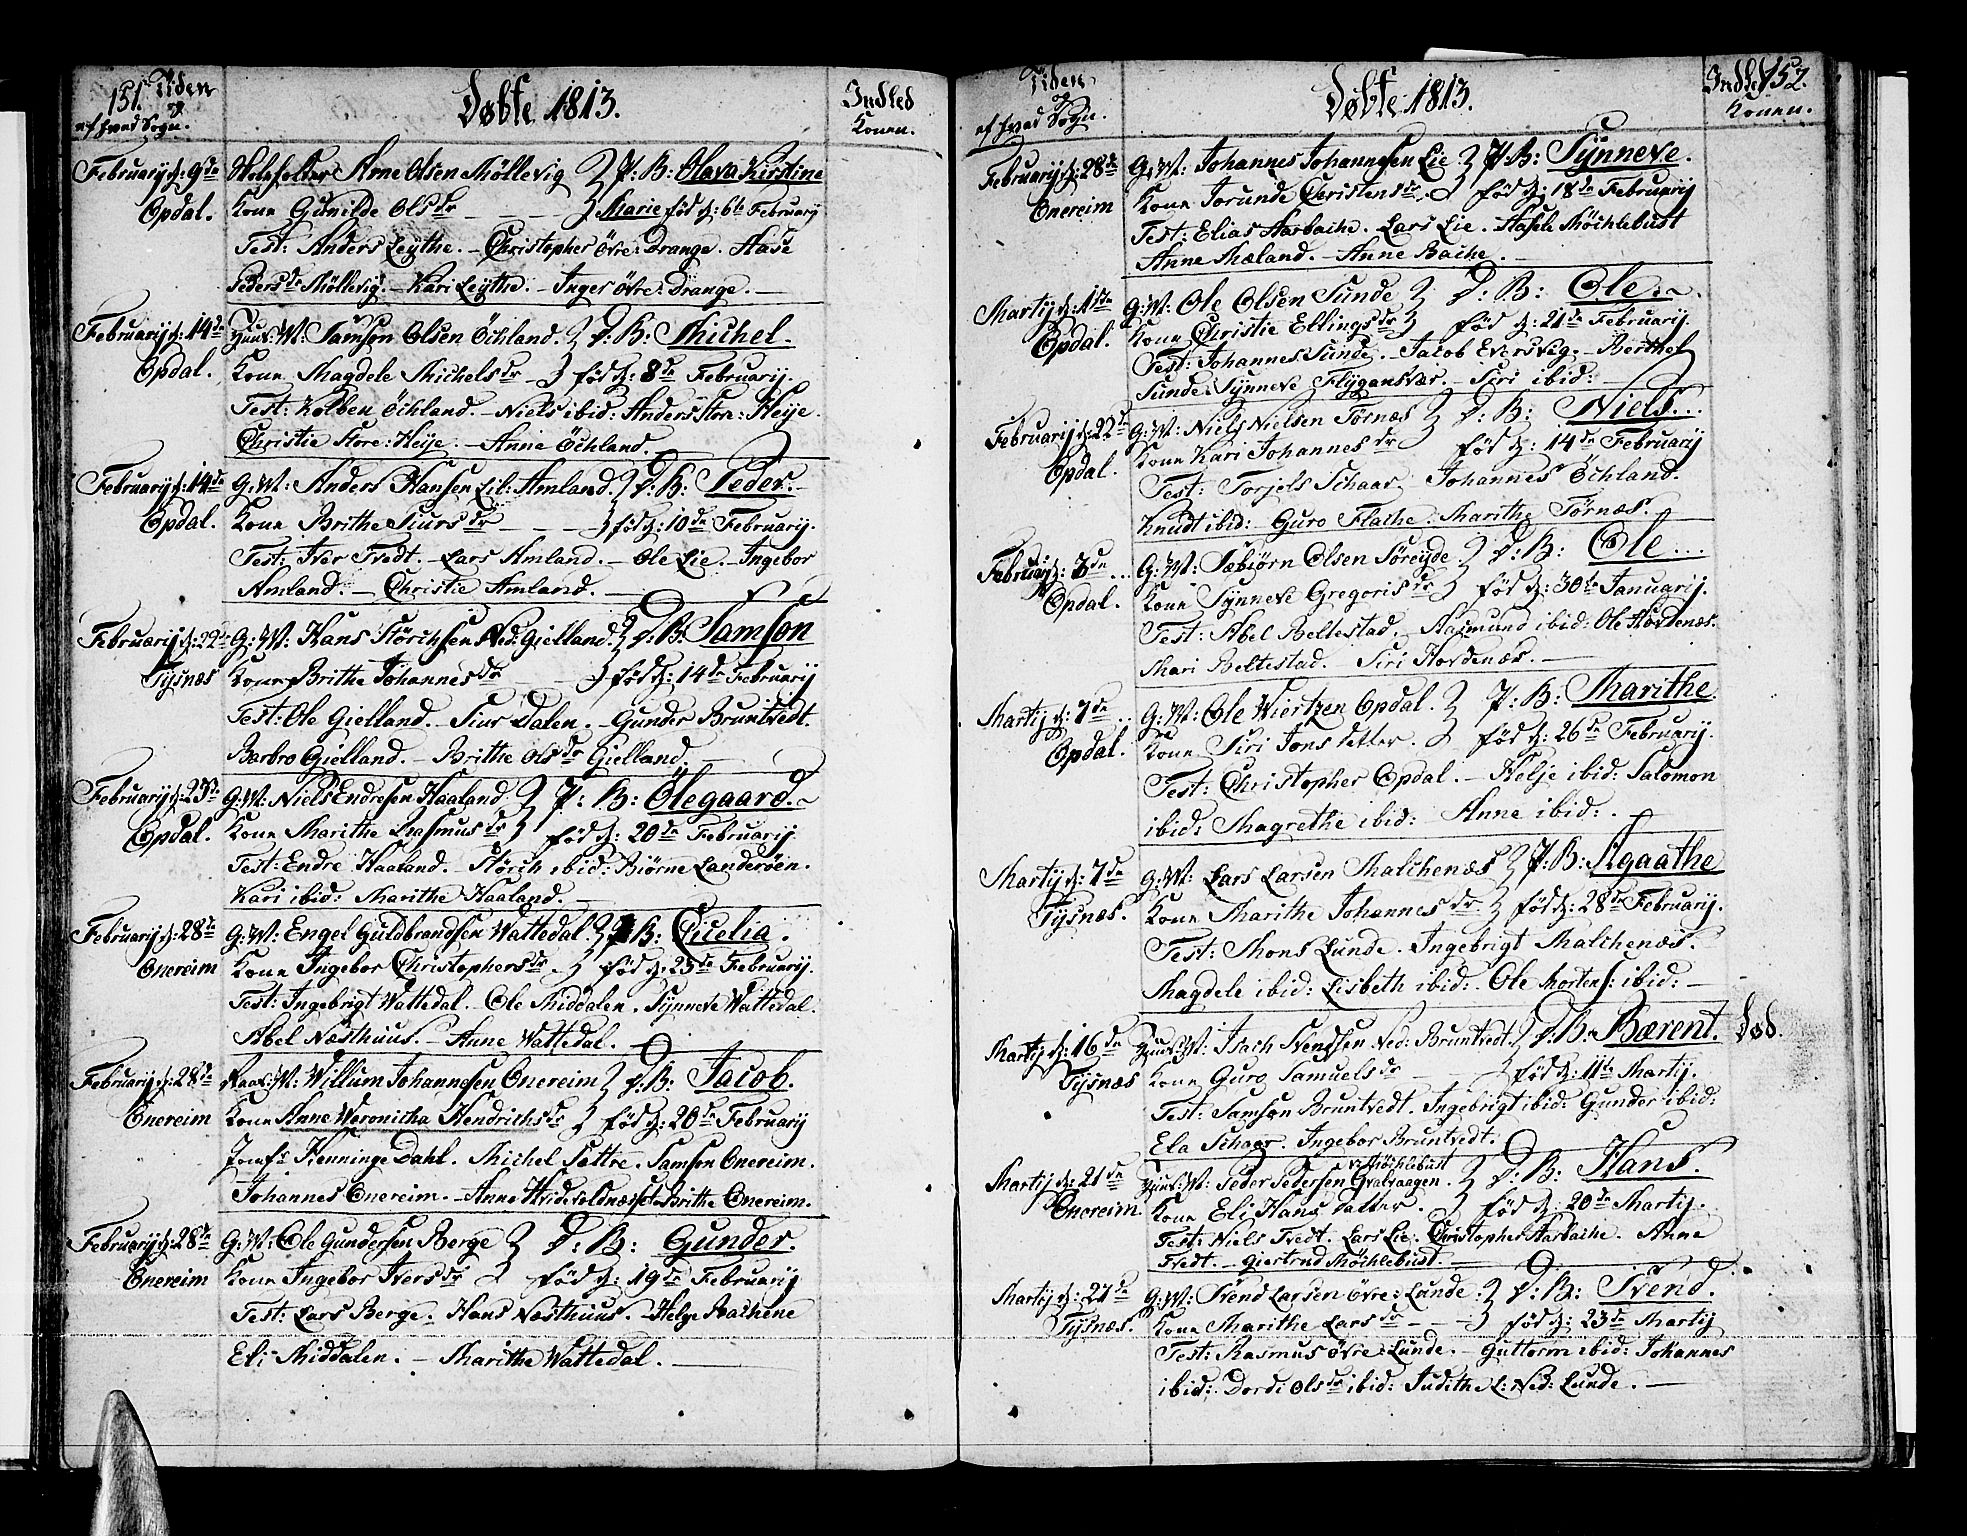 151. Tiden
og
af hvad Sogn.
Døbte 1813.
Indled
Konen.
Februarij d: 9de
Opdal.
Arne Olsen Möllevig P: B: Olava Kirstine
Kone Gunilde Olsdr - - - - Marie fød d: 6te Februarij
Test: Anders Leythe. - Christopher övre: Drange. Aase
Pedersdr Möllevig. - Kari Leythe. - Inger övre: Drange. -
Februarij d: 14de
Opdal.
Huus: M: Samson Olsen Öchland. D: B: Michel.
Kone Magdele Michelsdr - fød d: 8de Februarij.
Test: Kolben Öchland. - Niels ibid: Anders Store: Heije.
Christie Store: Heije. - Anne Öchland.
Februarij d: 14de
Opdal.
G: M: Anders Hansen Lil: Amland. D: B: Peder.
Kone Brithe Siursdr - - - fød d: 10de Februarij.
Test: Iver Tvedt. - Lars Amland. - Ole Lie. - Ingebor
Amland. - Christie Amland. -
Februarij d: 22de
Tysnæs
G: M: Hans Störchsen Ned: Gielland. D: B: Samson
Kone Brithe Johannesdr - - fød d: 14de Februarij
Test: Ole Gielland. - Siur Dalen. - Gunder Bruntvedt.
Barbro Gielland. - Brithe Olsdr Gielland. -
Februarij d: 23de
Opdal.
G: M: Niels Endresen Haaland. P: B: Ölegaard. ~
Kone Marithe Rasmusdr fød d: 20de Februarij.
Test: Endre Haaland. - Störch ibid: Biörne Landeröen.
Kari ibid: Marithe Haaland. -
Februarij d: 28de
Onereim
G: M: Engel Guldbrandsen Wattedal. P: B: Cicelia.
Kone Ingebor Christophersdr - fød d: 23de Februarij.
Test: Ingebrigt Wattedal. Ole Middalen. Synneve Wattedal.
Abel Næsthuus. - Anne Wattedal. -
Februarij d: 28de
Onereim
M: Willum Johannesen Onereim D: B: Jacob.
Kone Anne Weronicha Hendrichsdr fød d: 20de Februarij
Henninge Dahl. Michel Sættre. Samson Onereim.
Johannes Onereim. - Anne Brithe Onereim.
Februarij d: 28de
Onereim
G: M: Ole Gundersen Berge D: B: Gunder.
Kone Ingebor Iversdr fød d: 19de Februarij
Test: Lars Berge. Hans Næsthuus. - Helge Bachene
Eli Middalen. - Marithe Wattedal. -
Tiden
og
af hvad Sogn.
Døbte 1813.
Indled 152.
Konen.
Februarij d: 28de
Onereim
G: M: Johannes Johannesen Lie P: B: Synneve.
Kone Jorunde Christensdr. fød d: 18de Februarij
Test: Elias Aarbache. Lars Lie. Möchlebust
Anne Mæland. - Anne Bache. -
Martij d: 1ste
Opdal.
G: M: Ole Olsen Sunde D: B: Ole. ~
Kone Christie Ellingsdr fød d: 21de Februarij.
Test: Johannes Sunde. - Jacob Eversvig. - Berthel
Sunde. Synneve Flygansvær. - Siri ibid: -
Februarij d: 22de
Opdal.
G: M: Niels Nielsen Törnæs D: B: Niels...
Kone Kari Johannesdr fød d: 14de Februarij
Test: Torjels Schaar Johannes Öchland.
Knudt ibid: Guro Flathe. Marithe Törnæs.
Februarij d: 3de...
Opdal.
G: M: Sæbiörn Olsen Söreyde. D: B: Ole...
Kone Synneve Gregorisdr fød d: 30te Januarij.
Test: Abel Beltestad. - Aasmund ibid: Ole Hovdenæs.
Mari Beltestad. - Siri Hovdenæs. -
Martij d: 7de...
Opdal.
G: M: Ole Wiertzen Opdal. P: B: Marithe.
Kone Siri Jonsdatter. fød d: 26de Februarij.
Test: Christopher Opdal. - Helje ibid: Salomon
ibid: Magrethe ibid: Anne ibid: -
Martij d: 7de
Tysnæs.
G: M: Lars Larsen Malchenæs P: B: Agaathe
Kone Marithe Johannesdr. fød d: 28de Februarij.
Test: Mons Lunde. Ingebrigt Malchenæs.
Magdele ibid: Lisbeth ibid: Ole Mortens: ibid: -
Martij d: 16de
Tysnæs
Huus: M: Isach Svendsen Ned: Bruntvedt D: B: Bærent. Død.
Kone Guro Samuelsdr - - fød d: 11te Martij.
Test: Samson Bruntvedt. Ingebrigt ibid: Gunder ibid:
Ela Schaar. Ingebor Bruntvedt.
Martij d: 21de
Onereim.
v: Möchlebust
Huus: M: Peder Pedersen Gvalvaagen. D: B: Hans.
Kone Eli Hansdatter. fød d: 20de Martij.
Test: Niels Tvedt. Lars Lie. Christopher Aarbache. Anne
Tvedt. - Giertrud Möchlebust. -
Martij d: 27de
Tysnæs.
G: M: Svend Larsen övre: Lunde. D: B: Svend.
Kone Marithe Larsdr - - fød d: 23de Martij
Test: Rasmus övre: Lunde. - Guttorm ibid: Johannes
ibid: Dordi Olsdr ibid: Judithe L: Ned: Lunde. -